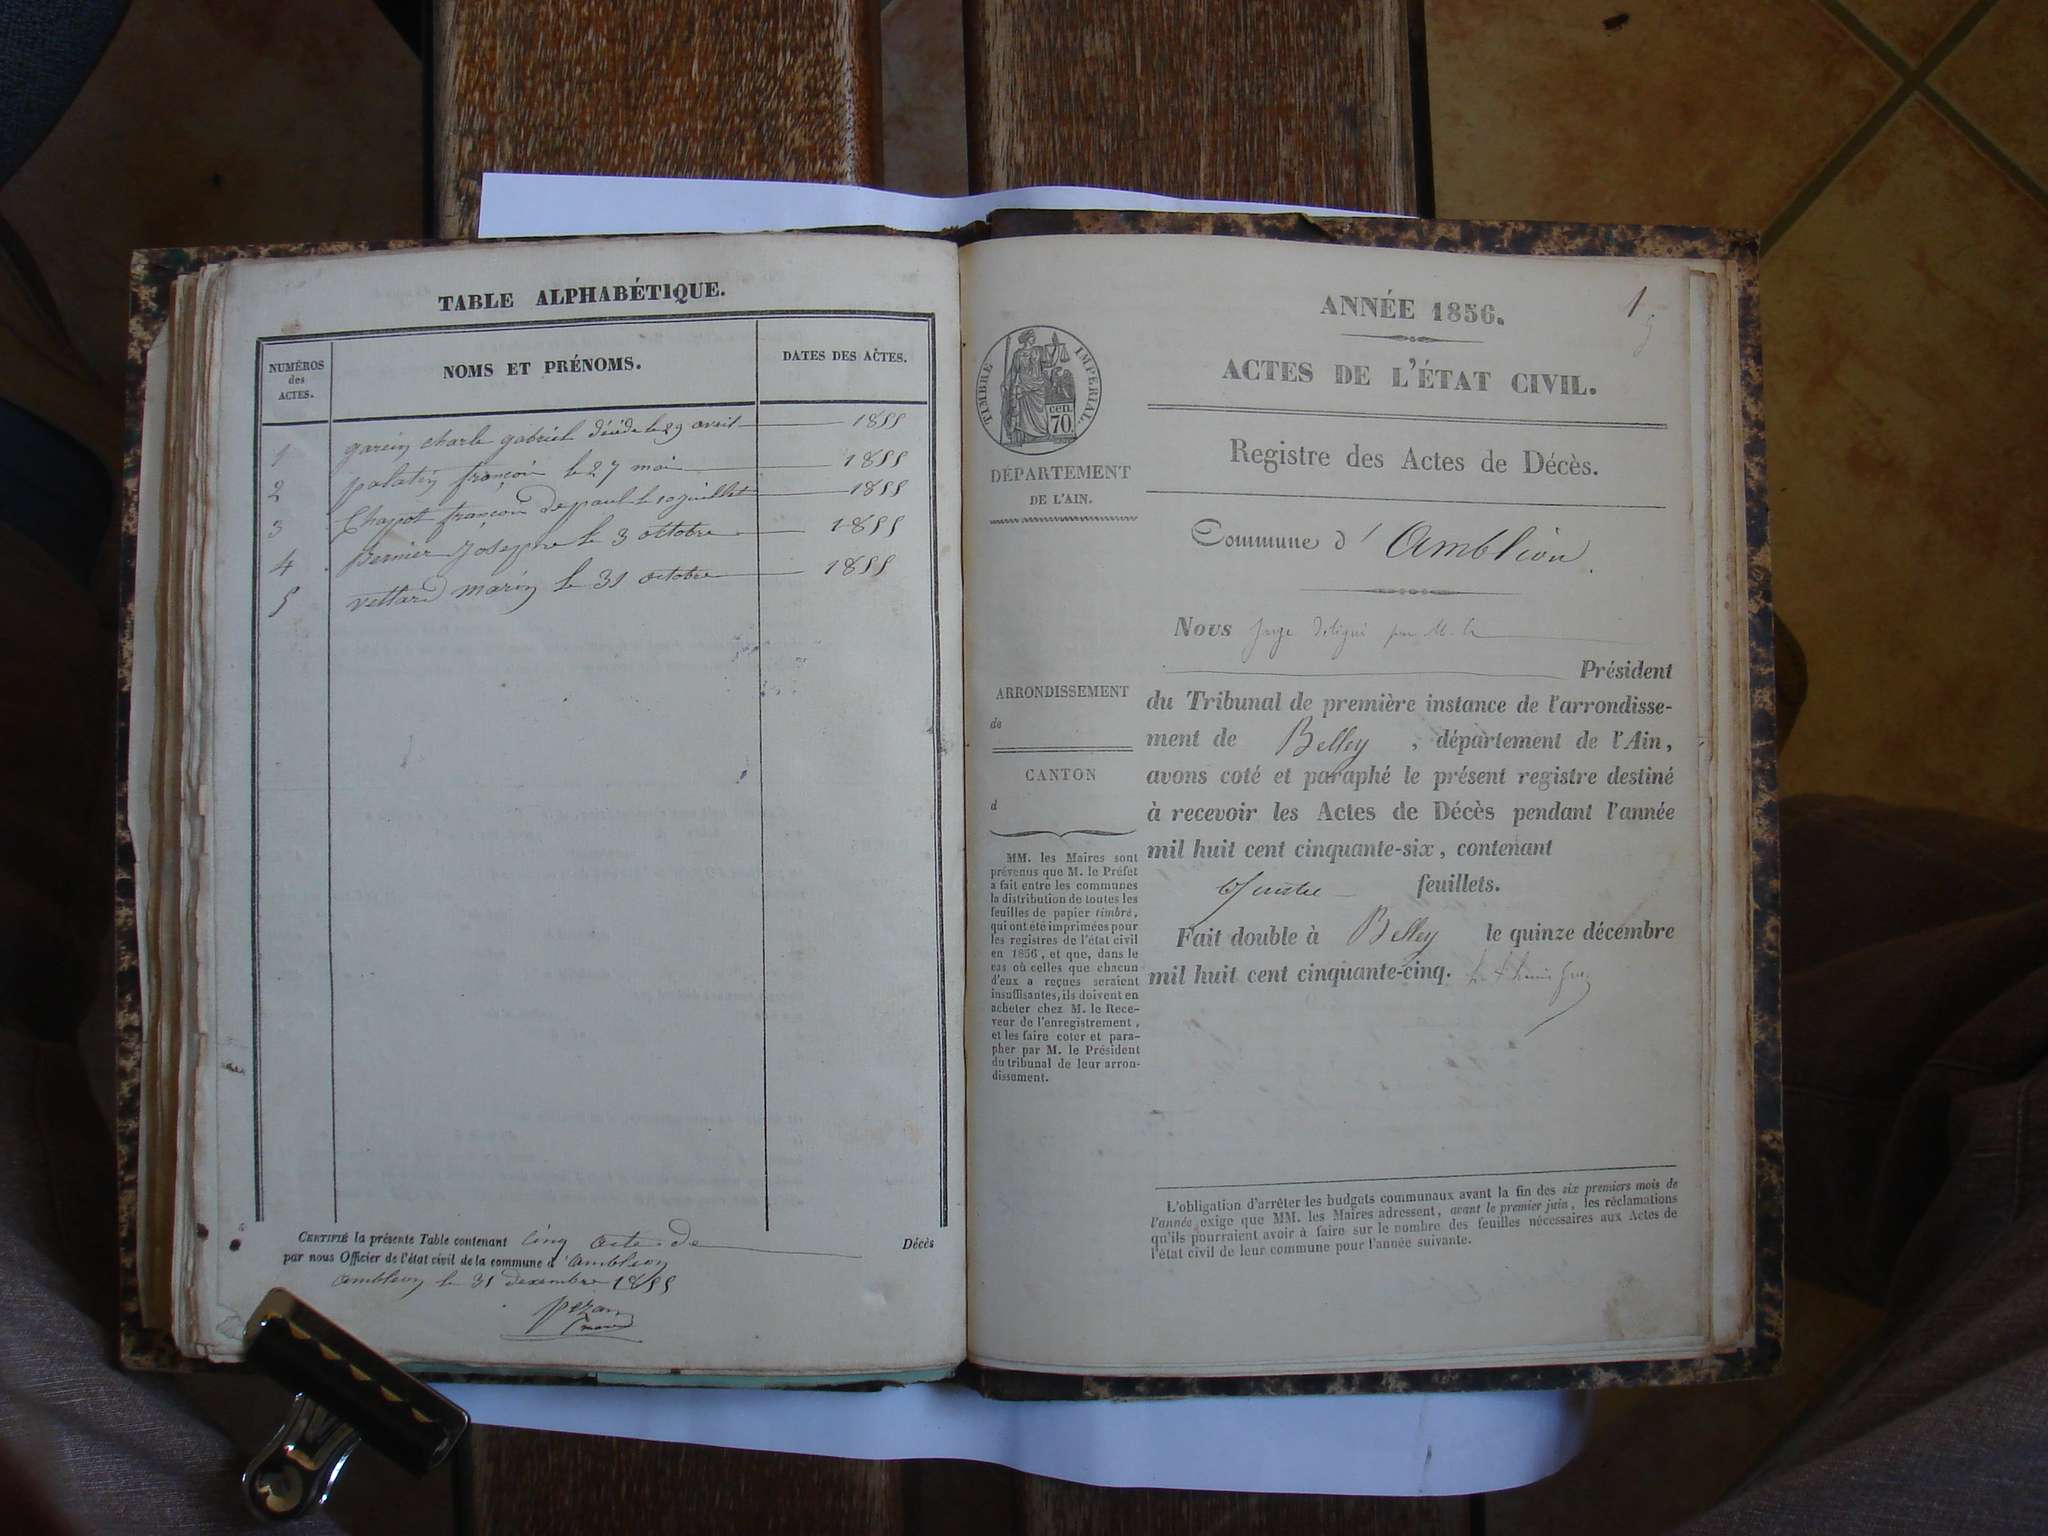 TABLE ALPHABÉTIQUE.
NUMÉROS
des
ACTES.
NOMS ET PRÉNOMS.
DATES DES ACTES.
1 garin charle gabriel décédé le 29 avril 1855
2 palatin françois le 27 mai 1855
3 Chapot françois depaul le 10 juillet 1855
4 pernier Josephe le 3 ottobre 1855
5 vettard marin le 31 octobre 1855
CERTIFIÉ la présente Table contenant cinq actes de Décès
par nous Officier de l'état civil de la commune d'ambleon
ambleon le 31 dexembre 1855
pezan
maire
1
ANNÉE 1856.
TIMBRE IMPÉRIAL.
cen.
70
ACTES DE L'ÉTAT CIVIL.
DÉPARTEMENT
DE L'AIN.
Registre des Actes de Décès.
Commune d'Ambléon.
Nous Juge délégué par M. le
Président
ARRONDISSEMENT
de
CANTON
d
du Tribunal de première instance de l'arrondisse-
ment de Belley, département de l'Ain,
avons coté et paraphé le présent registre destiné
à recevoir les Actes de Décès pendant l'année
mil huit cent cinquante-six, contenant
feuillets.
Fait double à Belley le quinze décembre
mil huit cent cinquante-cinq.
MM. les Maires sont
prévenus que M. le Préfet
a fait entre les communes
la distribution de toutes les
feuilles de papier timbré,
qui ont été imprimées pour
les registres de l'état civil
en 1856, et que, dans le
cas où celles que chacun
d'eux a reçues seraient
insuffisantes, ils doivent en
acheter chez M. le Rece-
veur de l'enregistrement,
et les faire coter et para-
pher par M. le Président
du tribunal de leur arron-
dissement.
L'obligation d'arrêter les budgets communaux avant la fin des six premiers mois de
l'année exige que MM. les Maires adressent, avant le premier juin, les réclamations
qu'ils pourraient avoir à faire sur le nombre des feuilles nécessaires aux Actes de
l'état civil de leur commune pour l'année suivante.